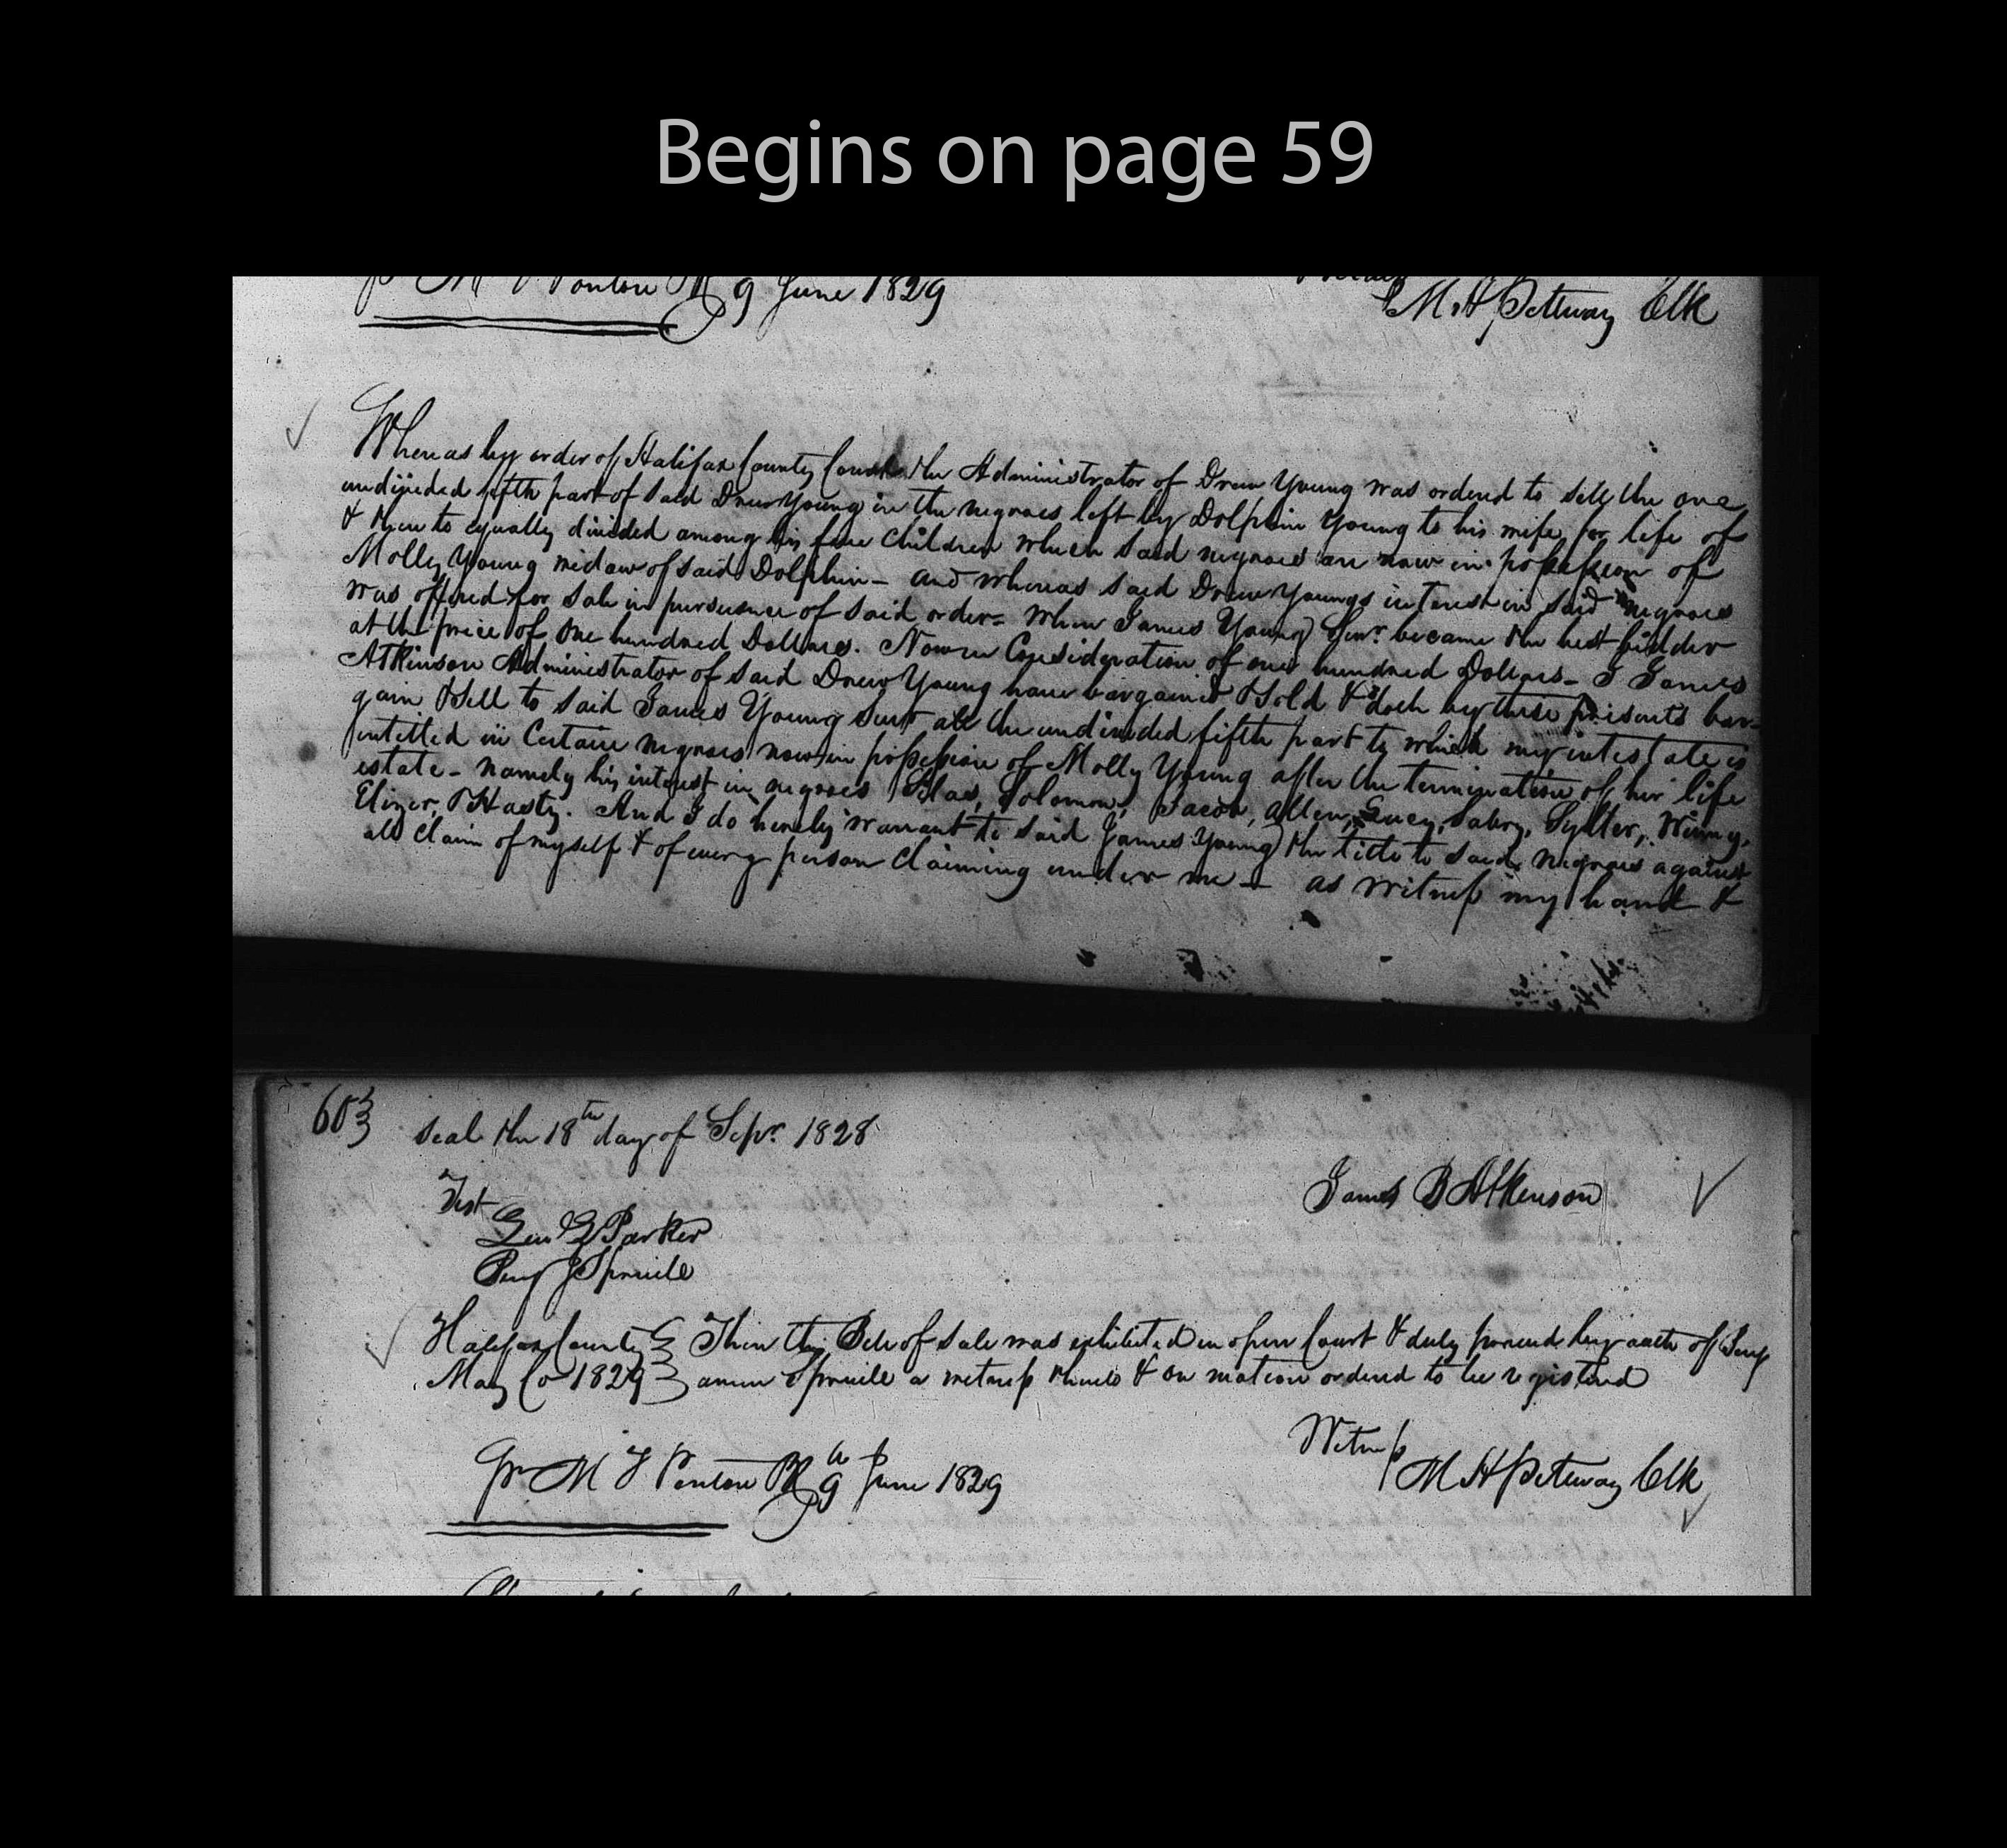 Begins on page 59
M Ponton PR 9 June 1829
M. H. Pettway Clk
Whereas by order of Halifax County Court the Administrator of Drew Young was ordered to sell the one
undivided fifth part of said Drew Young in the negroes left by Dolphin Young to his wife for life of
& then to equally divided among his five Children which said negroes are now in possession of
Molly Young widow of said Dolphin - and whereas said Drew Youngs interest in said negroes
was offered for sale in pursuance of said order = when James Young Senr. became the best bidder
at the price of one hundred Dollars. Now in Consideration of one hundred Dollars - I James
Atkinson Administrator of said Drew Young have bargained & Sold & doth by these presents bar-
gain & Sell to said James Young Senr all the undivided fifth part to which my intestate is
intitled in Certain negroes now in possession of Molly Young after the termination of her life
estate - namely his interest in negroes Silas, Solomon, Jacob, Allen, Lucy, Sabry, Sylter, Winny,
Elizer, & Hasty. And I do hereby warrant to said James Young the title to said negroes against
all Claim of myself & of every person Claiming under me - as witness my hand &
60
seal the 18th day of Sepr. 1828
James B Atkinson
Test
Parker
Benj Spruill
Halifax County } Then this Bill of Sale was exhibited in open Court & duly proved by oath of Benj
May Co 1829 } Spruill a witness thereto & on motion ordered to be registered
Witness
Pr M Ponton PR 9 June 1829
M H Pettway Clk